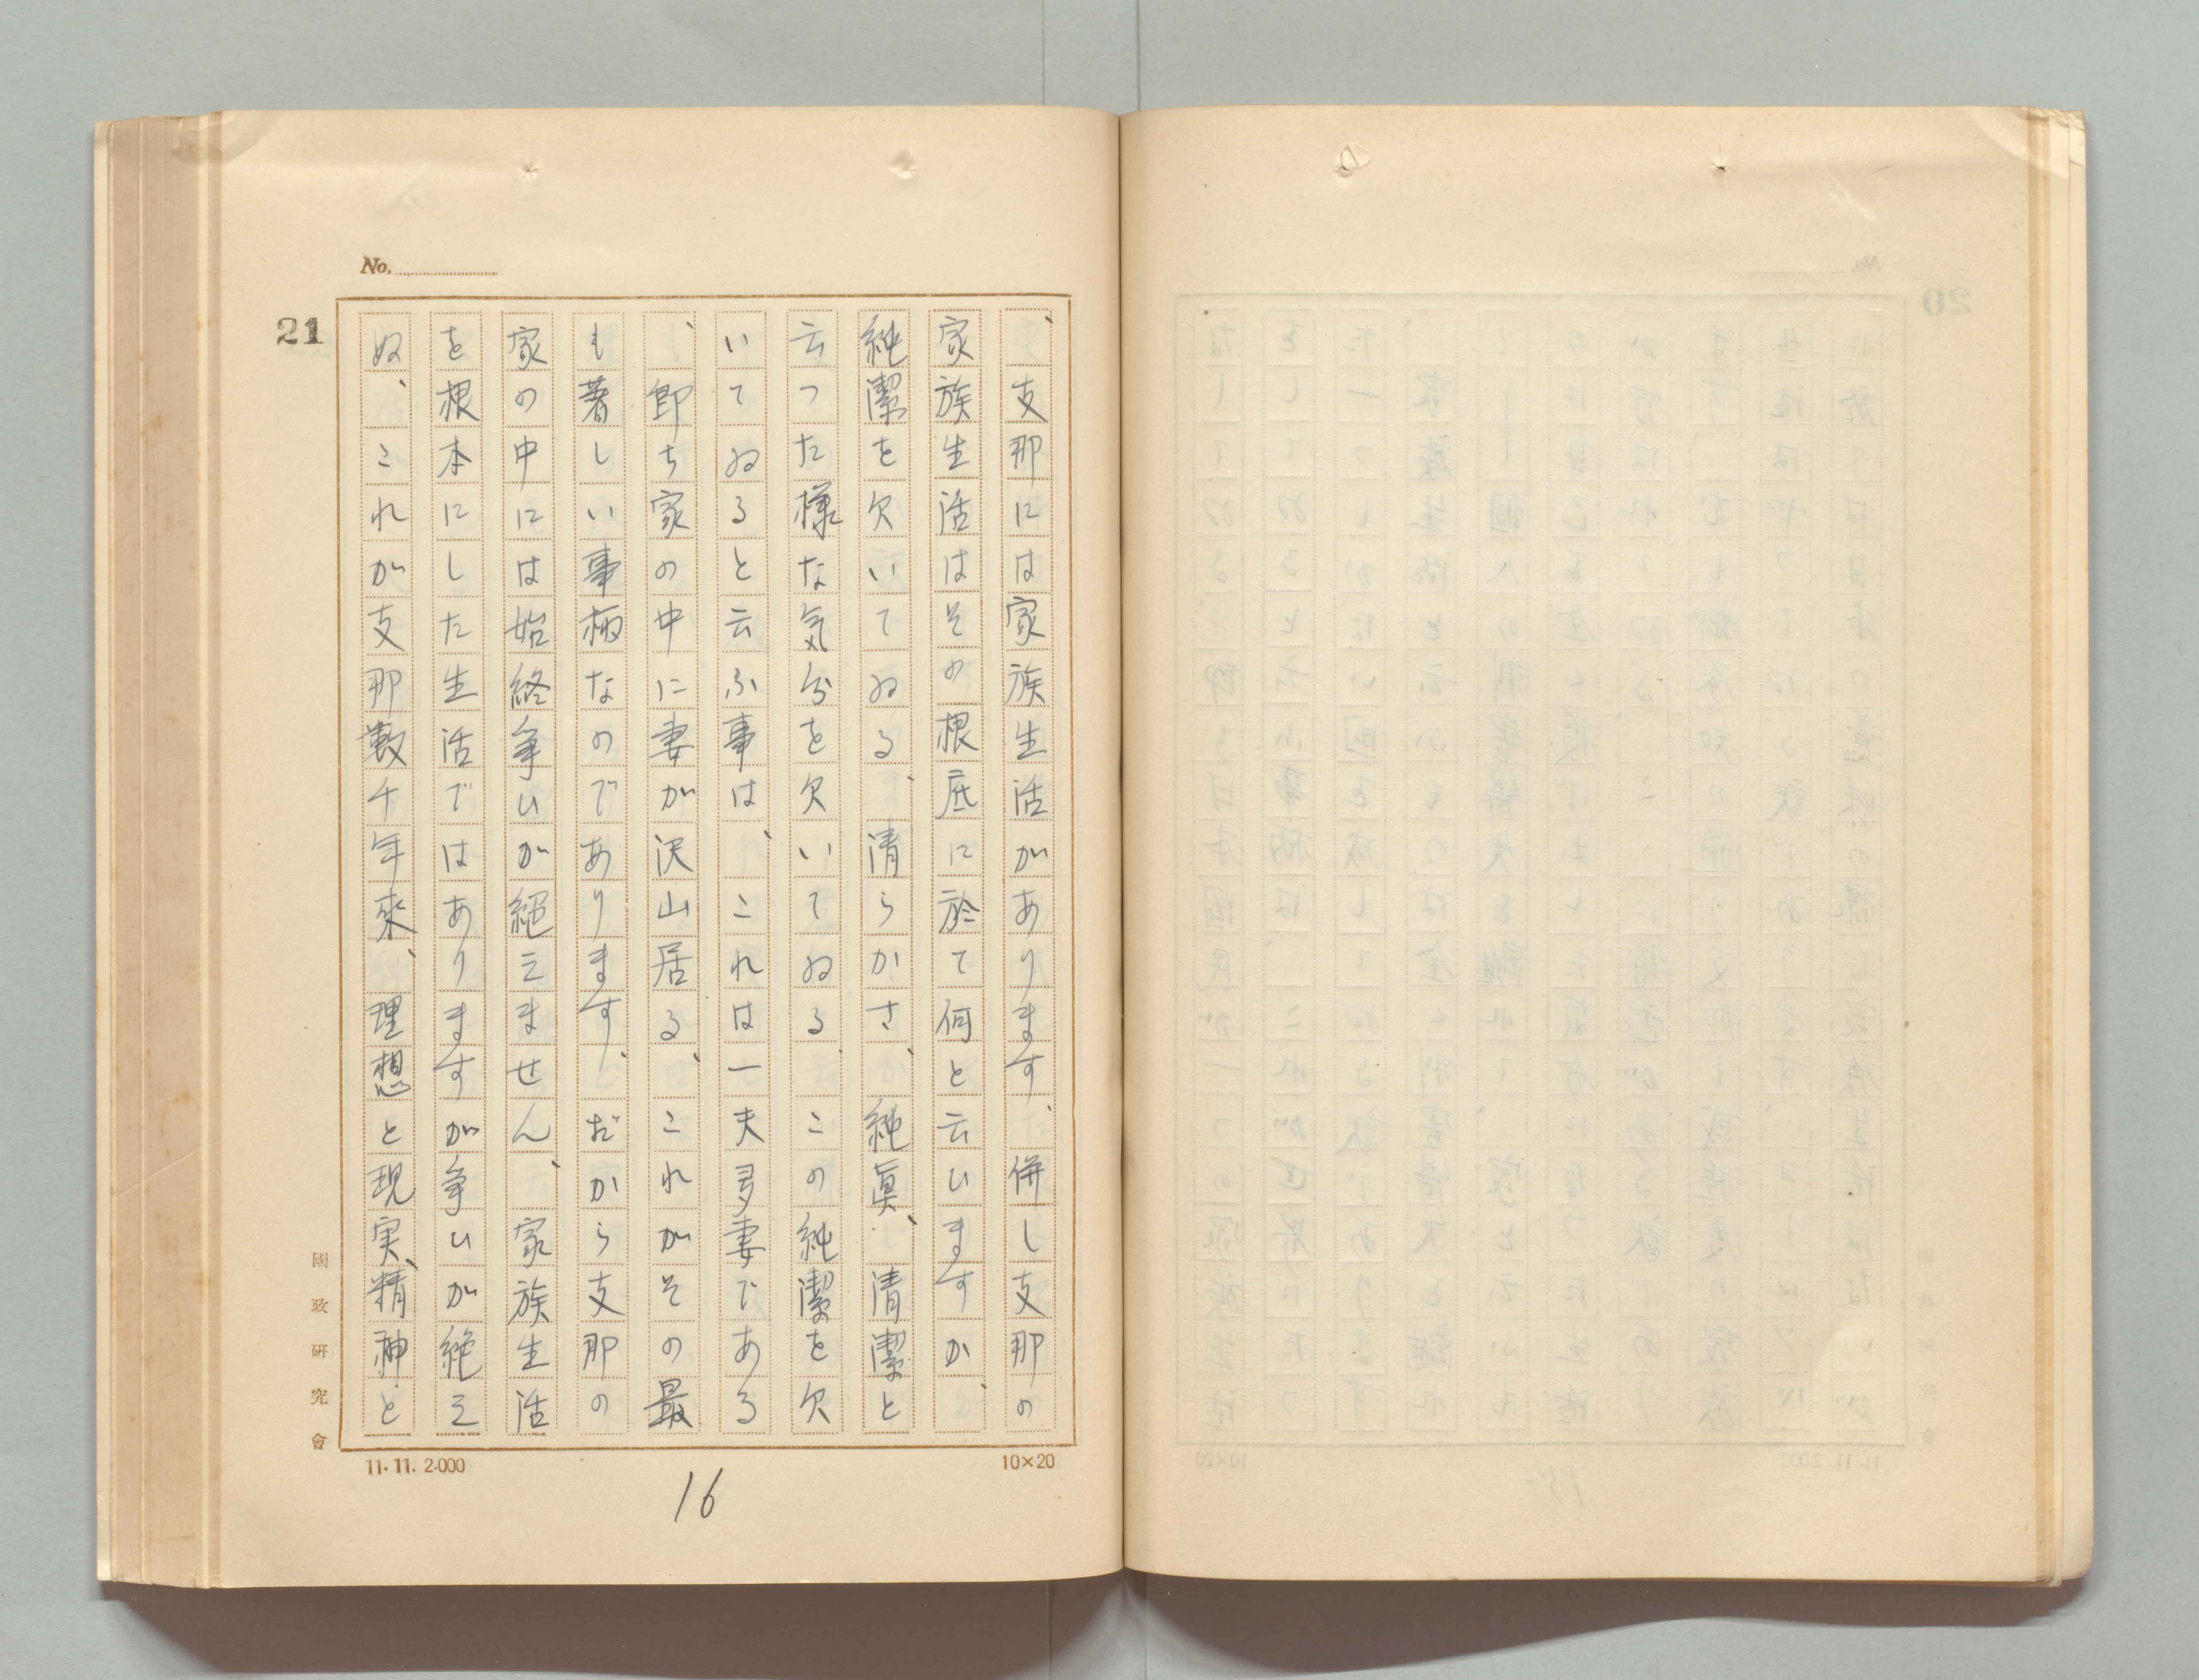 No.
21
、支那には家族生活があります、併し支那の
家族生活はその根底に於て何と云ひますか、
純潔を欠いてゐる、清らかさ、純眞、清潔と
云つた様な気分を欠いてゐる、この純潔を欠
いてゐると云ふ事は、これは一夫多妻である
、即ち家の中に妻が沢山居る、これがその最
も著しい事柄なのであります、だから支那の
家の中には始終争ひが絕えません、家族生活
を根本にした生活ではありますが争ひが絶え
ぬ、これが支那数千年來、理想と現実、精神と
國政研究會
11.11.2.000
10×20
16